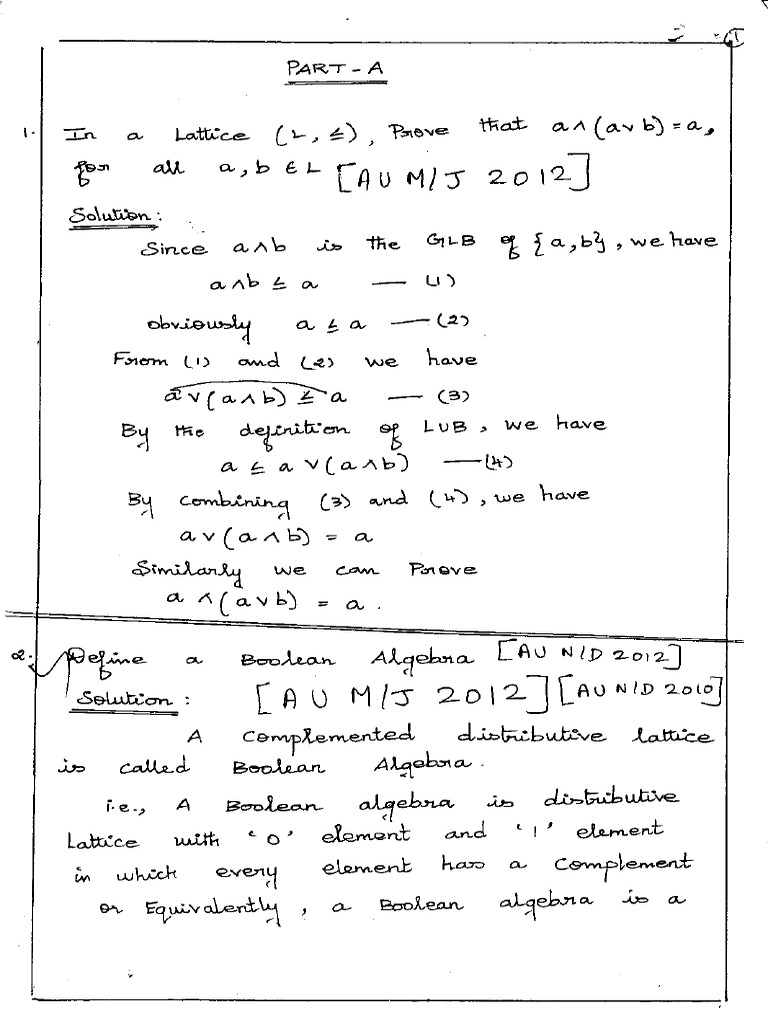 PART-A
1. In a Lattice (L, ≤), Prove that a∧(a∨b)=a,
for all a, b ∈ L [AU M/J 2012]
Solution:
Since a∧b is the GLB of {a,b}, we have
a∧b ≤ a — (1)
obviously a ≤ a — (2)
From (1) and (2) we have
a∨(a∧b) ≤ a — (3)
By the definition of LUB, we have
a ≤ a∨(a∧b) — (4)
By combining (3) and (4), we have
a∨(a∧b) = a
Similarly we can Prove
a∧(a∨b) = a.
2. Define a Boolean Algebra [AU N/D 2012]
Solution: [AU M/J 2012] [AU N/D 2010]
A Complemented distributive lattice
is called Boolean Algebra.
i.e., A Boolean algebra is distributive
Lattice with '0' element and '1' element
in which every element has a Complement
or Equivalently, a Boolean algebra is a